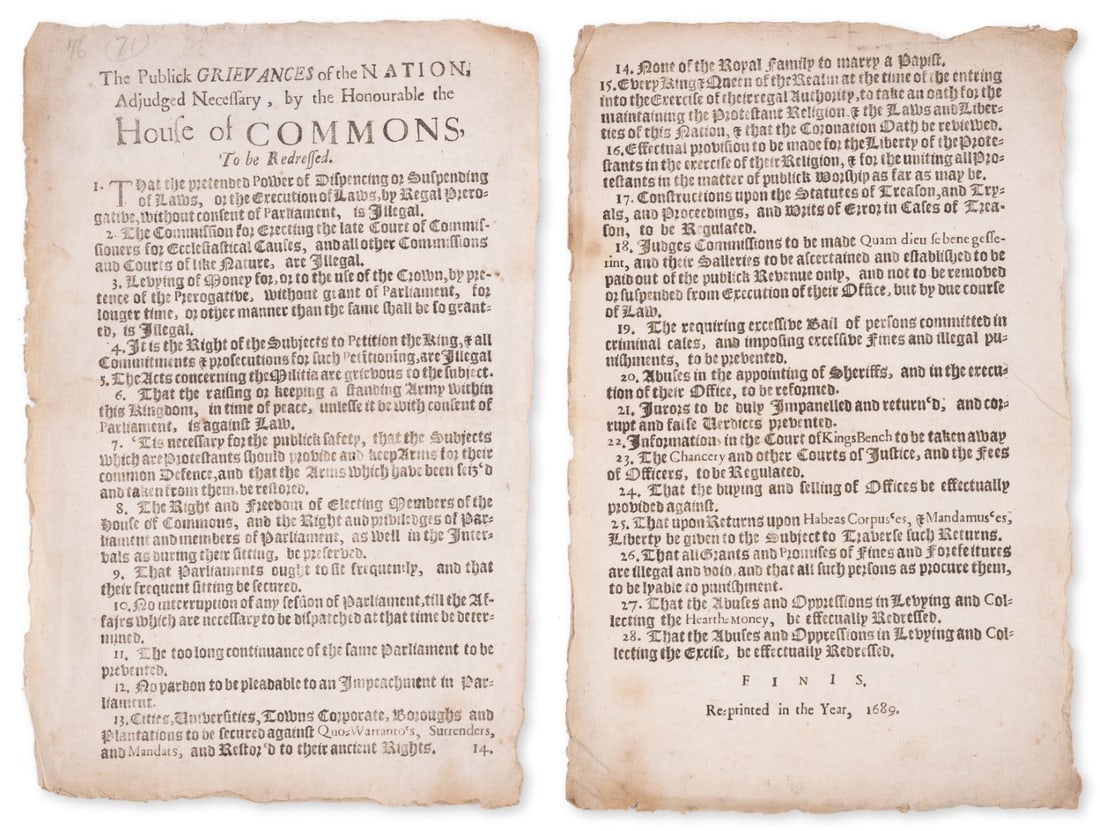 76 (71)
The Publick GRIEVANCES of the NATION,
Adjudged Necessary, by the Honourable the
House of COMMONS,
To be Redressed.
1. THat the pretended Power of Dispencing or Suspending
of Laws, or the Execution of Laws, by Regal Prero-
gative, without consent of Parliament, is Illegal.
2. The Commission for Erecting the late Court of Commis-
sioners for Ecclesiastical Causes, and all other Commissions
and Courts of like Nature, are Illegal.
3. Levying of Money for, or to the use of the Crown, by pre-
tence of the Prerogative, without grant of Parliament, for
longer time, or other manner than the same shall be so grant-
ed, is Illegal.
4. It is the Right of the Subjects to Petition the King, & all
Commitments & prosecutions for such Petitioning, are Illegal
5. The Acts concerning the Militia are grievous to the subject.
6. That the raising or keeping a standing Army within
this Kingdom, in time of peace, unlesse it be with consent of
Parliament, is against Law.
7. 'Tis necessary for the publick safety, that the Subjects
which are Protestants should provide and keep Arms for their
common Defence, and that the Arms which have been seiz'd
and taken from them, be restored.
8. The Right and Freedom of Electing Members of the
House of Commons, and the Right and priviledges of Par-
liament and members of Parliament, as well in the Inter-
vals as during their sitting, be preserved.
9. That Parliaments ought to sit frequently, and that
their frequent sitting be secured.
10. No interruption of any session of Parliament, till the Af-
fairs which are necessary to be dispatched at that time be deter-
mined.
11. The too long continuance of the same Parliament to be
prevented.
12. No pardon to be pleadable to an Impeachment in Par-
liament.
13. Cities, Universities, Towns Corporate, Boroughs and
Plantations to be secured against Quo-Warranto's, Surrenders,
and Mandats, and Restor'd to their ancient Rights. 14.
14. None of the Royal Family to marry a Papist.
15. Every King & Queen of the Realm at the time of the entring
into the Exercise of their regal Authority, to take an oath for the
maintaining the Protestant Religion & the Laws and Liber-
ties of this Nation, & that the Coronation Oath be reviewed.
16. Effectual provision to be made for the Liberty of the Prote-
stants in the exercise of their Religion, & for the uniting all Pro-
testants in the matter of publick Worship as far as may be.
17. Constructions upon the Statutes of Treason, and Try-
als, and Proceedings, and Writs of Error in Cases of Trea-
son, to be Regulated.
18. Judges Commissions to be made Quam dieu se bene gesse-
rint, and their Salleries to be ascertained and established to be
paid out of the publick Revenue only, and not to be removed
or suspended from Execution of their Office, but by due course
of Law.
19. The requiring excessive Bail of persons committed in
criminal cases, and imposing excessive Fines and illegal pu-
nishments, to be prevented.
20. Abuses in the appointing of Sheriffs, and in the execu-
tion of their Office, to be reformed.
21. Jurors to be duly Impanelled and return'd, and cor-
rupt and false Verdicts prevented.
22. Informations in the Court of Kings Bench to be taken away
23. The Chancery and other Courts of Justice, and the Fees
of Officers, to be Regulated.
24. That the buying and selling of Offices be effectually
provided against.
25. That upon Returns upon Habeas Corpus'es, & Mandamus'es,
Liberty be given to the Subject to Traverse such Returns.
26. That all Grants and Promises of Fines and Forefeitures
are illegal and void, and that all such persons as procure them,
to be lyable to punishment.
27. That the Abuses and Oppressions in Levying and Col-
lecting the Hearth-Money, be effectually Redressed.
28. That the Abuses and Oppressions in Levying and Col-
lecting the Excise, be effectually Redressed.
FINIS.
Re-printed in the Year, 1689.